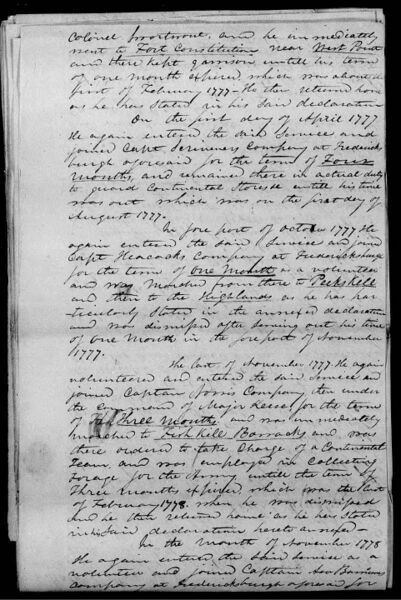 Colonel Swartwout, and he immediately
went to Fort Constitution near West Point
and there kept garrison untill his term
of one Month expired which was about the
first of February 1777 - He then returned home
as he has Stated in his said declaration
On the first day of April 1777
He again entered the said Service and
joined Capt Scriveners Company at Frederick
burgh aforesaid for the term of Four
Months, and remained there in actual duty
to guard Continental Stores untill his time
was out which was on the first day of
August 1777.
In fore part of October 1777 He
again entered the said Service and joined
Capt Heacocks Company at Fredericksburgh
for the term of One Month as a volunteer
and was Marched from there to Peekskill
and then to the Highlands as he has par
ticularly Stated in the annexed declaration
and was dismissed after serving out his time
of One Month in the fore part of November
1777.
The last of November 1777. He again
volunteered and entered the said Service and
joined Captain Company then under
the command of Major Reese for the term
of Three Months and was immediately
marched to Fishkill Barracks and was
there ordered to take Charge of a Continental
Team and was employed in Collecting
Forage for the Army untill the term of
Three Months expired which was the last
of February 1778 when he was dismissed
and he then returned home as he has Stated
in his said declaration hereto annexed -
In the Month of November 1778
He again entered the said Service as a
volunteer and joined Captain
Company at Fredericksburgh aforesaid for